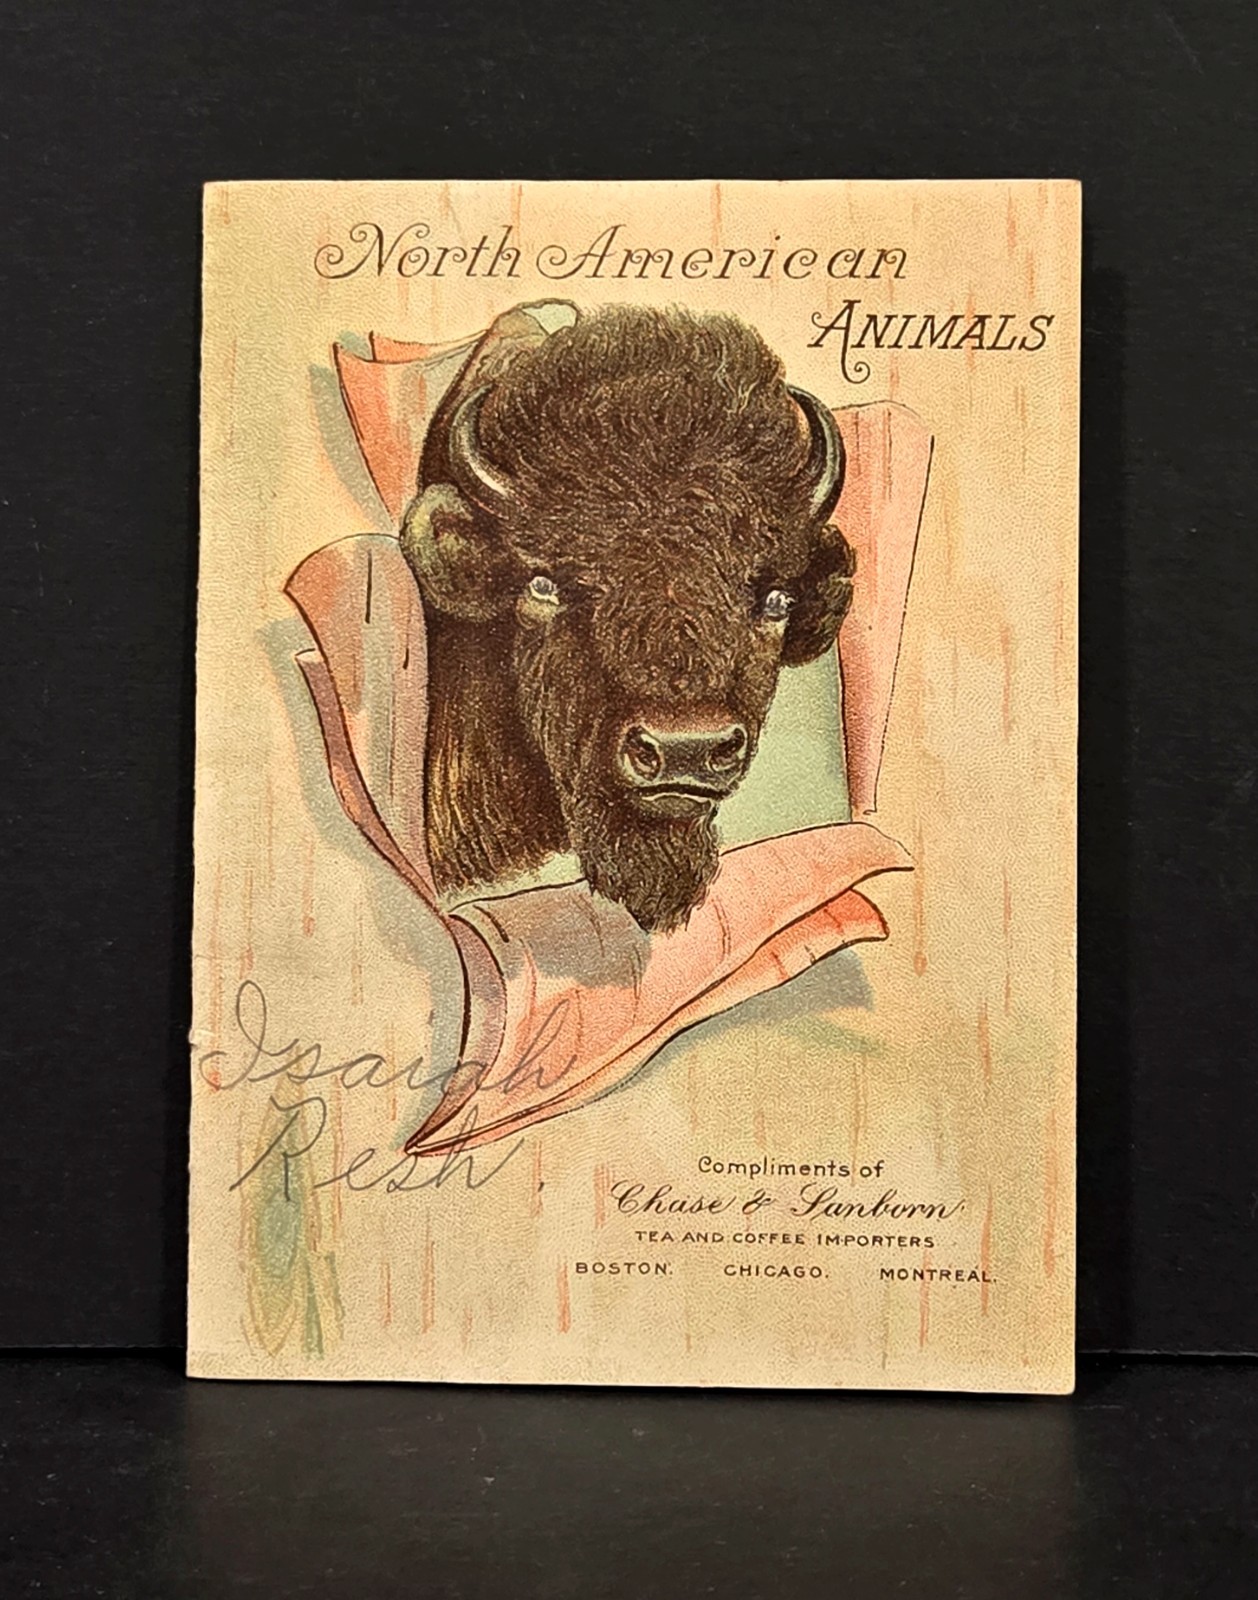 North American
ANIMALS
Isaiah
Resh.
Compliments of
Chase & Sanborn
TEA AND COFFEE IMPORTERS
BOSTON. CHICAGO. MONTREAL.